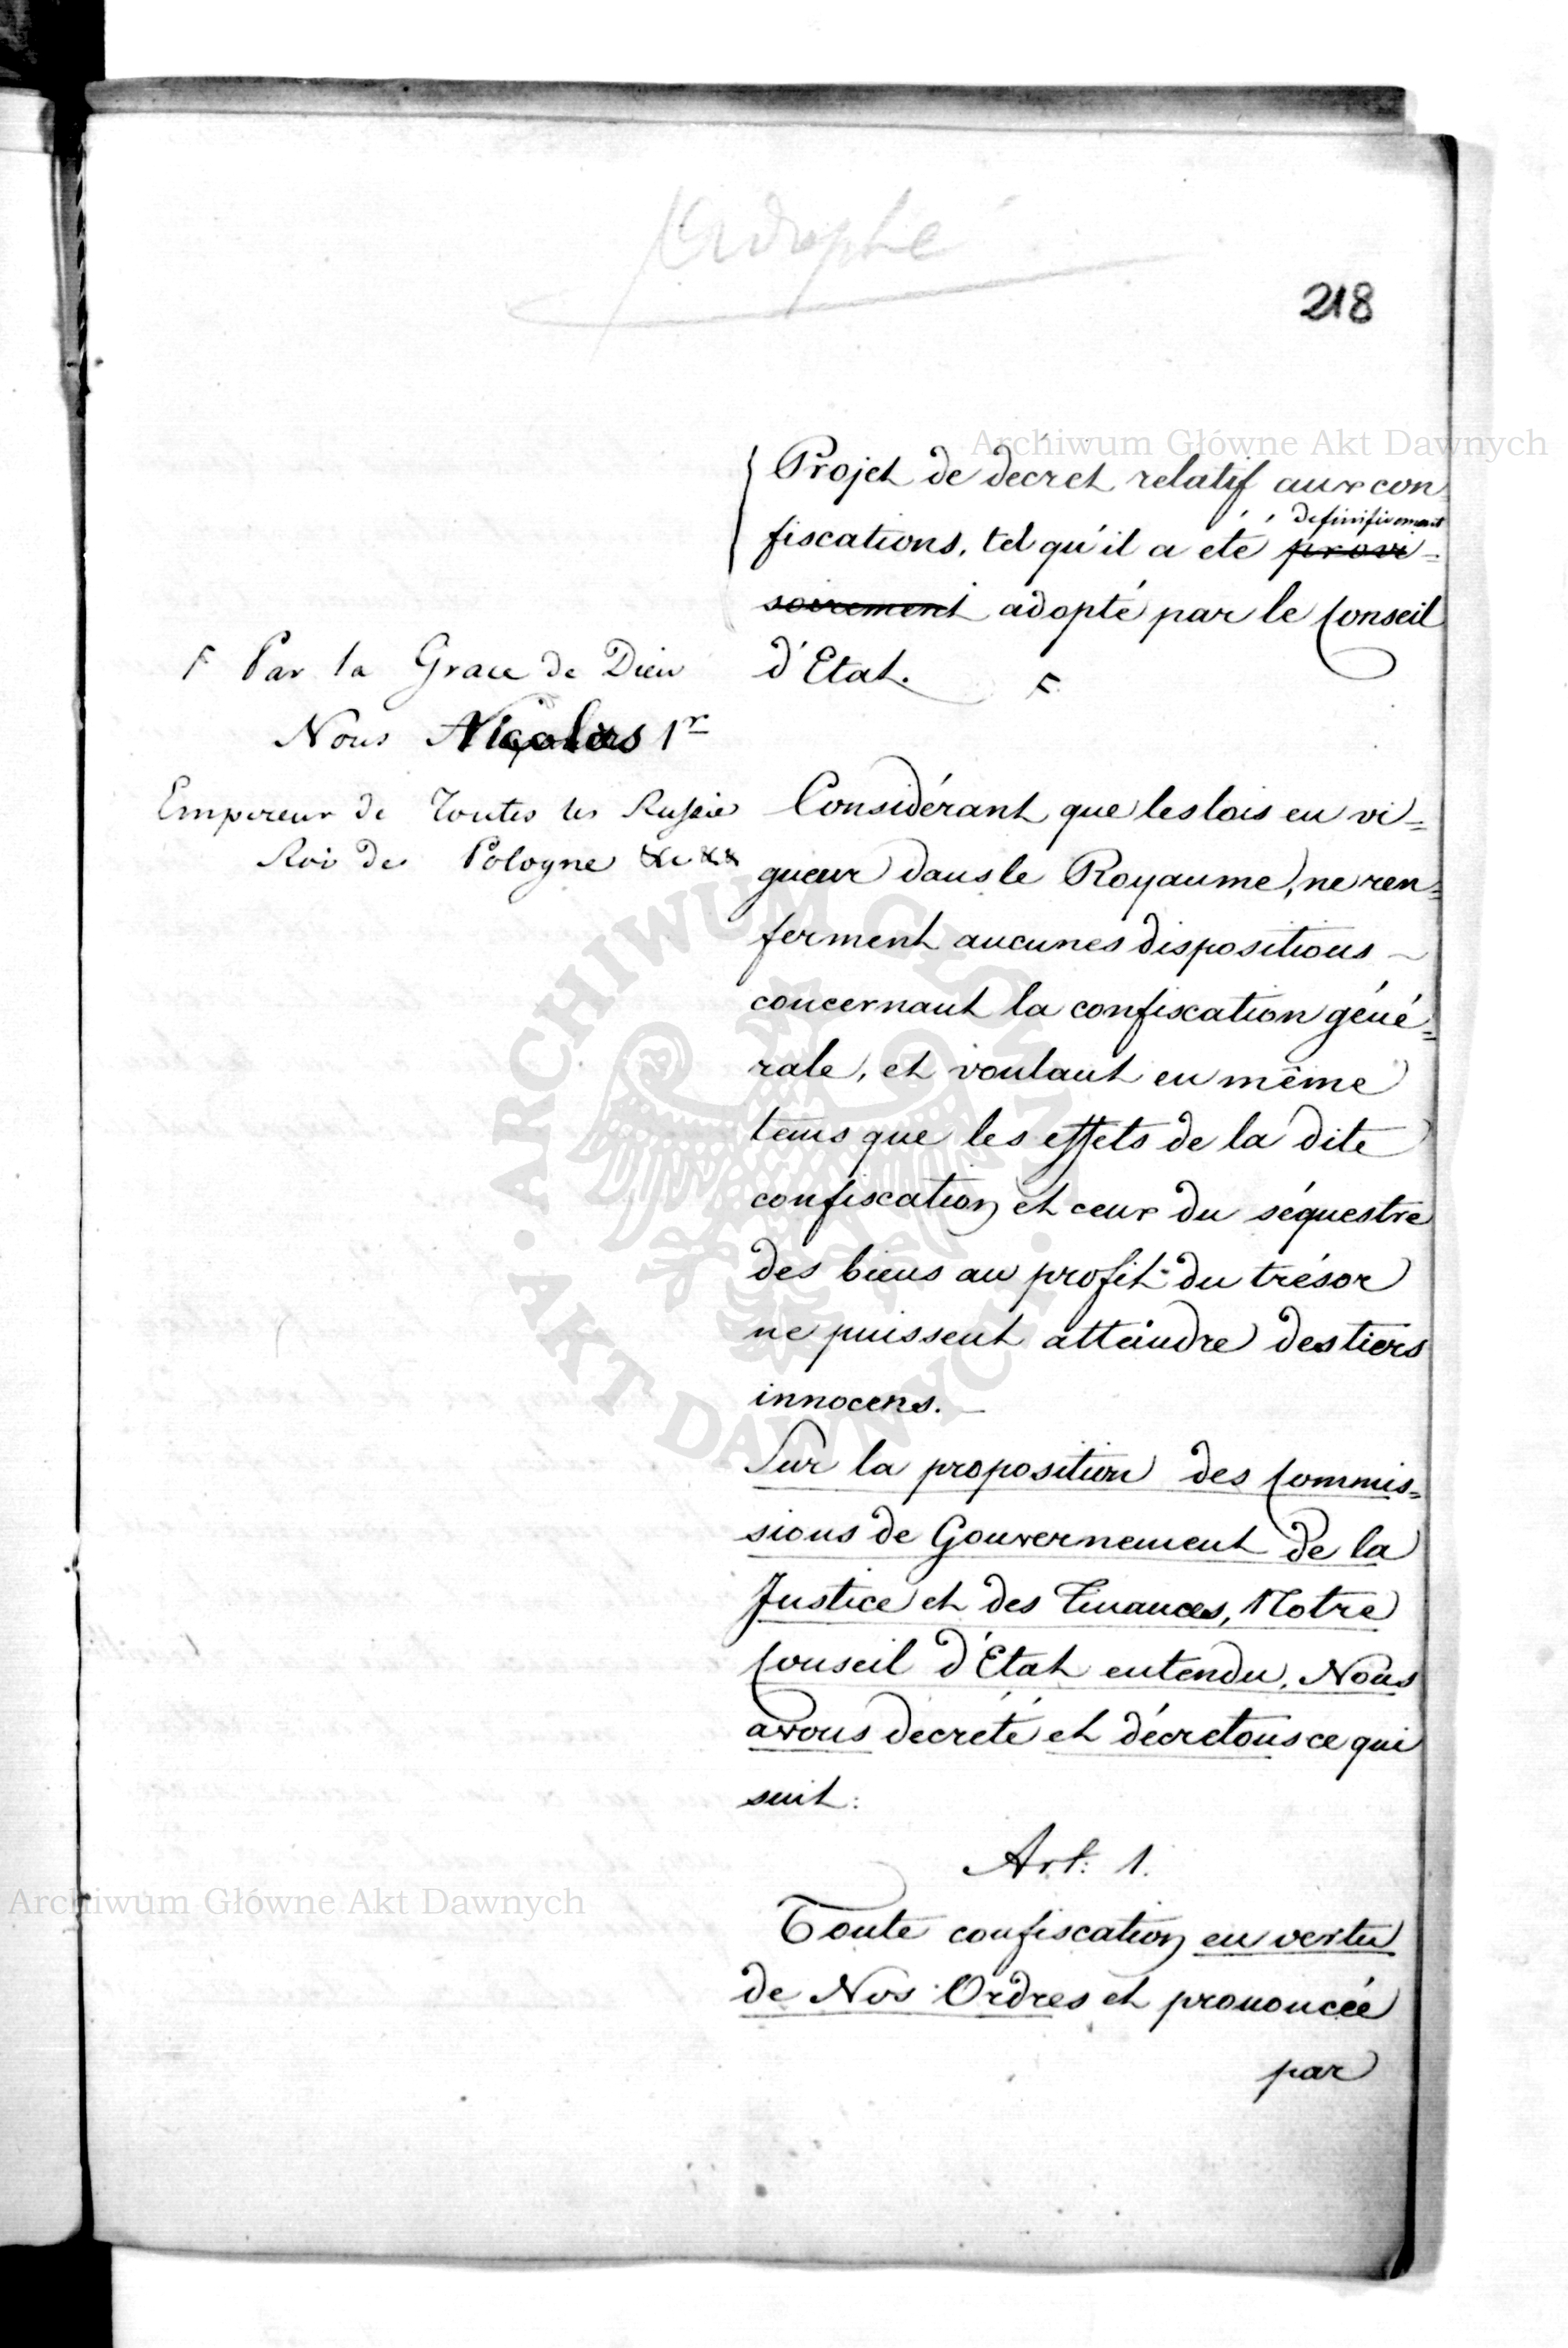 adopté
218
Projet de decret relatif aux con
definitivement
fiscations, tel qu'il a été provi=
soirement adopté par le Conseil
d'Etat. F
F Par la Grace de Dieu
Nous Nicolas 1r
Empereur de Toutes les Russie
Roi de Pologne &c &&
Considérant que les lois en vi=
gueur dans le Royaume, ne ren=
ferment aucunes dispositions
concernant la confiscation géné=
rale, et voulant en même
tems que les effets de la dite
confiscation et ceux du séquestre
des biens au profit du trésor
ne puissent atteindre des tiers
innocens.
Sur la proposition des Commis=
sions de Gouvernement de la
Justice et des Finances, Notre
Conseil d'Etat entendu, Nous
avons decrété et décretons ce qui
suit:
Art: 1.
Toute confiscation en vertu
de Nos Ordres et prononcée
par
Archiwum Główne Akt Dawnych
ARCHIWUM GŁÓWNE
AKT DAWNYCH
Archiwum Główne Akt Dawnych